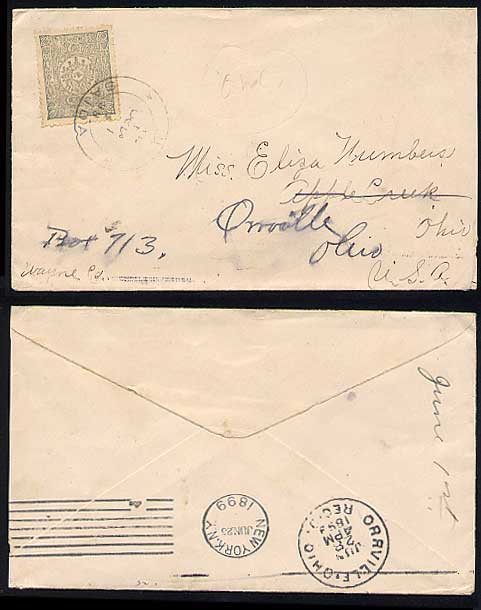 SAIDA
Miss. Eliza Numbers
Apple Creek
Orrville
Ohio
Ohio
Box 713.
Wayne Co.
U.S.A.
June 1st.
NEW YORK, N.Y.
1899
ORRVILLE, OHIO
JUN
4 PM
1899
REC'D.